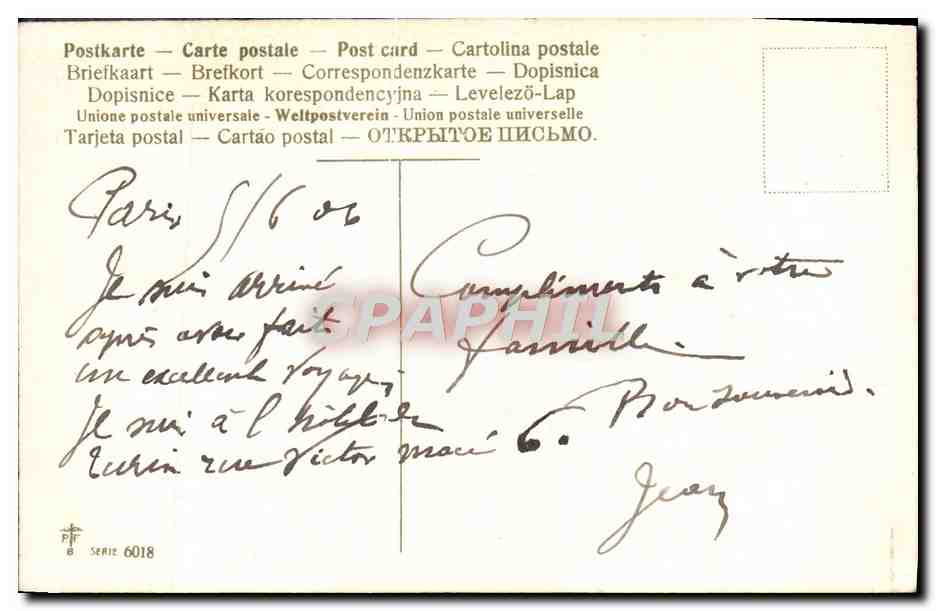 Postkarte — Carte postale — Post card — Cartolina postale
Briefkaart — Brefkort — Correspondenzkarte — Dopisnica
Dopisnice — Karta korespondencyjna — Levelező-Lap
Unione postale universale - Weltpostverein - Union postale universelle
Tarjeta postal — Cartão postal — ОТКРЫТОЕ ПИСЬМО.
Paris 5/6 06
Je suis arrivé
après avoir fait
un excellent voyage,
Je suis à l'hôtel de
Turin rue Victor Macé 6.
Compliments à votre
famille.
Bon souvenir.
Jean
CPAPHIL
PFB
SERIE 6018